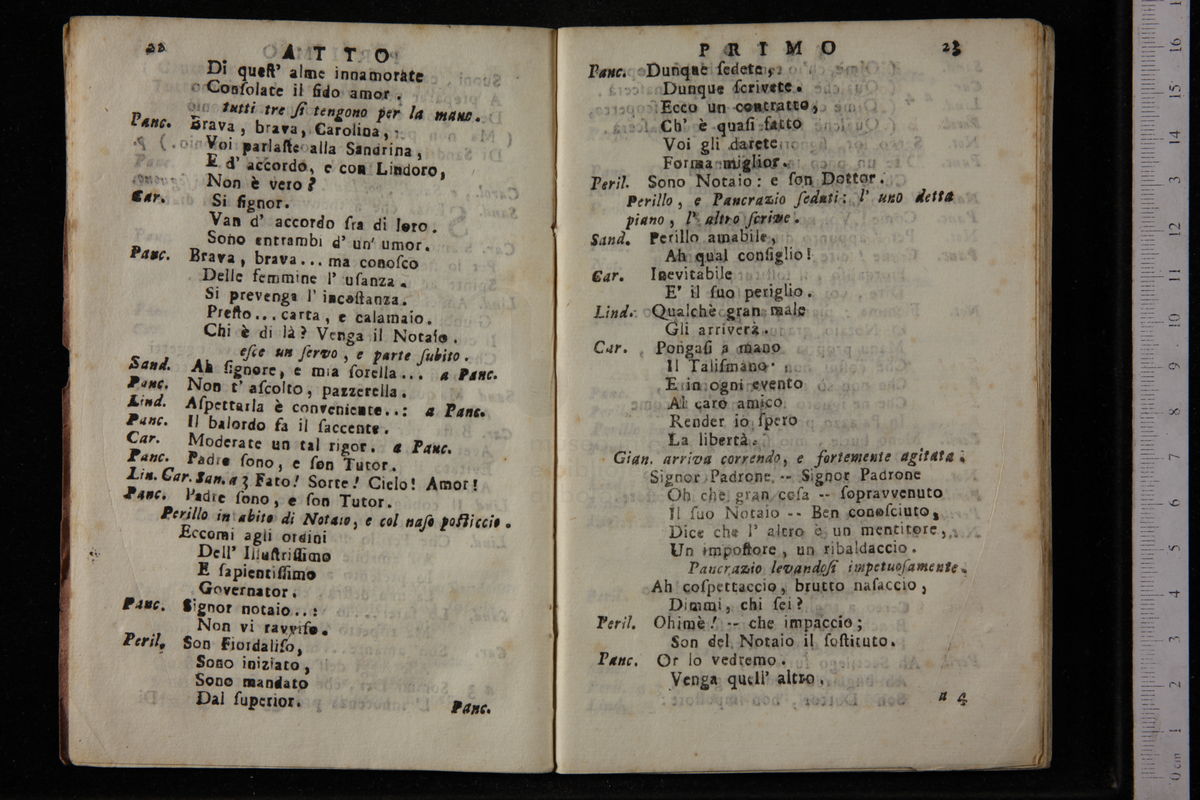 22 ATTO
Di queſt' alme innamorate
Conſolate il fido amor.
tutti tre ſi tengono per la mano.
Panc. Brava, brava, Carolina,
Voi parlaſte alla Sandrina,
E d' accordo, e con Lindoro,
Non è vero?
Car. Si ſignor.
Van d' accordo fra di loro.
Sono entrambi d' un' umor.
Panc. Brava, brava... ma conoſco
Delle femmine l' uſanza.
Si prevenga l' incoſtanza.
Preſto... carta, e calamaio.
Chi è di là? Venga il Notaio.
eſce un ſervo, e parte ſubito.
Sand. Ah ſignore, e mia ſorella... a Panc.
Panc. Non t' aſcolto, pazzerella.
Lind. Aſpettarla è conveniente..: a Panc.
Panc. Il balordo fa il ſaccente.
Car. Moderate un tal rigor. a Panc.
Panc. Padre ſono, e ſon Tutor.
Lin. Car. San. a 3 Fato! Sorte! Cielo! Amor!
Panc. Padre ſono, e ſon Tutor.
Perillo in abito di Notaio, e col naſo poſticcio.
Eccomi agli ordini
Dell' Illuſtriſſimo
E ſapientiſſimo
Governator.
Panc. Signor notaio..:
Non vi ravviſo.
Peril. Son Fiordaliſo,
Sono iniziato,
Sono mandato
Dal ſuperior.
Panc.
PRIMO 23
Panc. Dunque ſedete,
Dunque ſcrivete.
Ecco un contratto,
Ch' è quaſi fatto
Voi gli darete
Forma miglior.
Peril. Sono Notaio: e ſon Dottor.
Perillo, e Pancrazio ſeduti: l' uno detta
piano, l' altro ſcrive.
Sand. Perillo amabile,
Ah qual conſiglio!
Car. Inevitabile
E' il ſuo periglio.
Lind. Qualchè gran male
Gli arriverà.
Car. Pongaſi a mano
Il Taliſmano
E in ogni evento
Al caro amico
Render io ſpero
La libertà.
Gian. arriva correndo, e fortemente agitata.
Signor Padrone -- Signor Padrone
Oh che gran coſa -- ſopravvenuto
Il ſuo Notaio -- Ben conoſciuto,
Dice che l' altro è un mentitore,
Un impoſtore, un ribaldaccio.
Pancrazio levandoſi impetuoſamente.
Ah coſpettaccio, brutto naſaccio,
Dimmi, chi ſei?
Peril. Ohimè! -- che impaccio;
Son del Notaio il ſoſtituto.
Panc. Or lo vedremo.
Venga quell' altro.
a 4